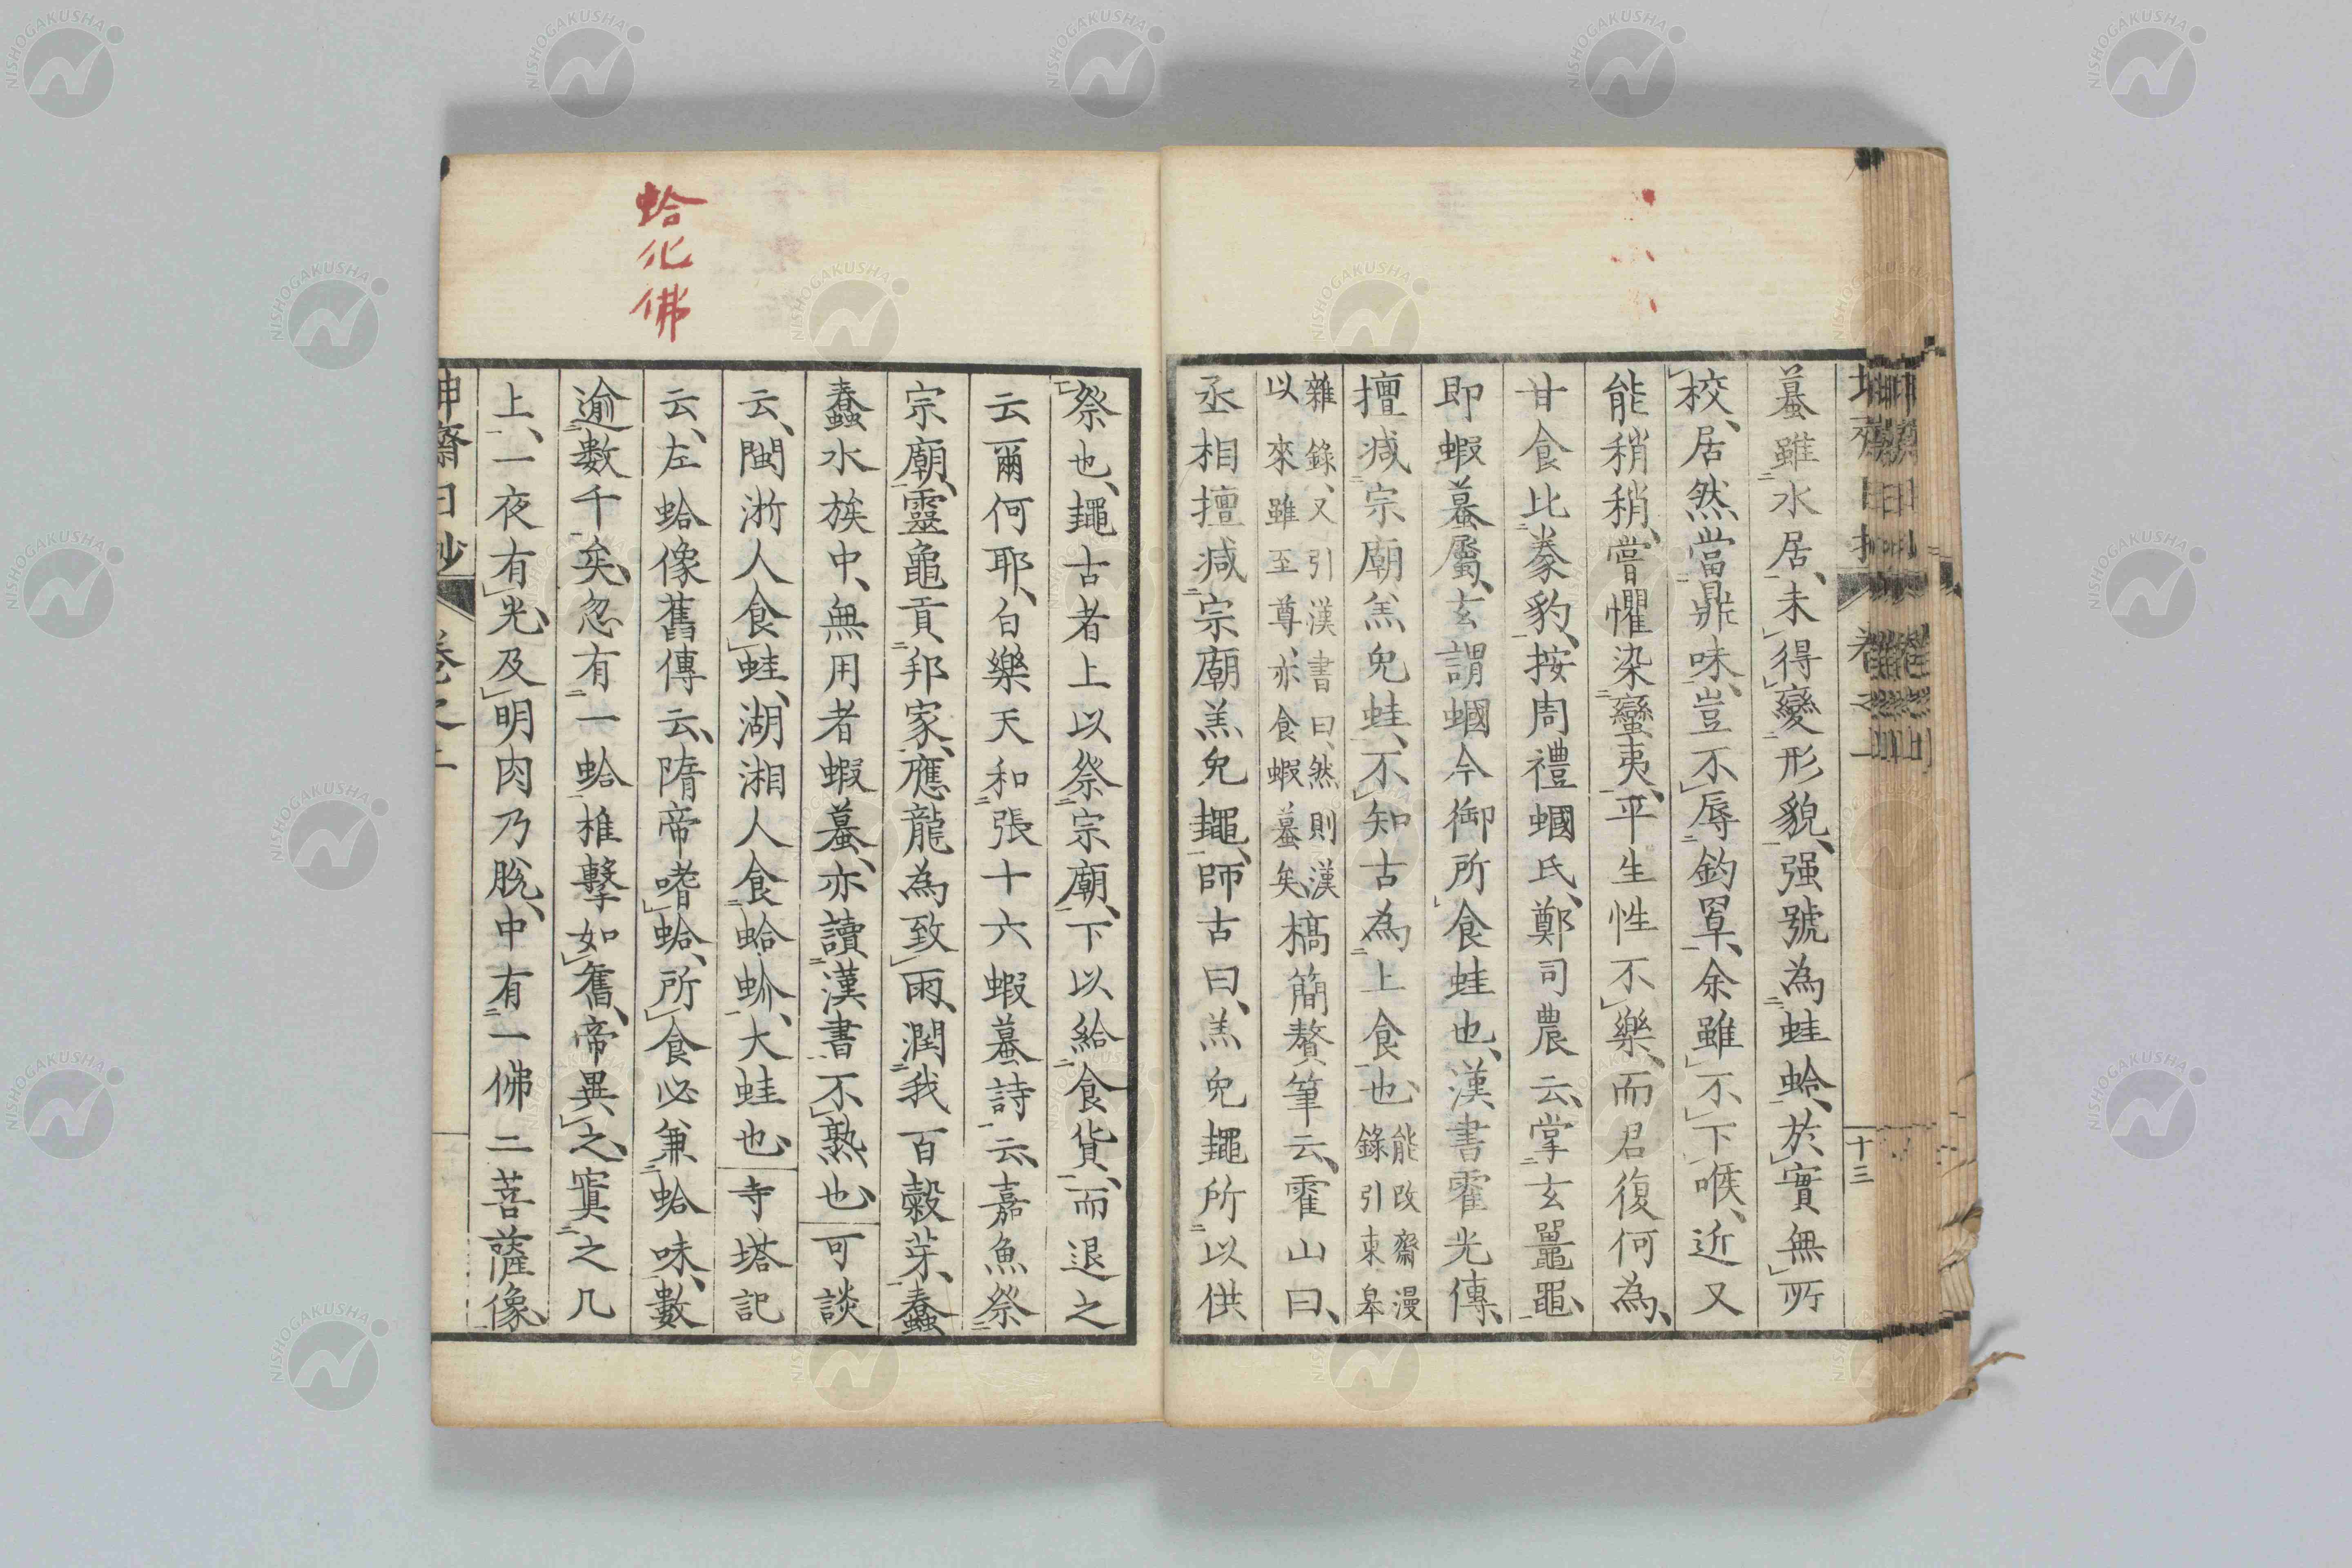 蟇雖水居、未得變形貌、强號為蛙蛤、於實無所
校、居然當鼎味、豈不辱釣罩、余雖不下喉、近又
能稍稍、嘗懼染蠻夷、平生性不樂、而君復何為、
甘食比豢豹、按周禮蟈氏、鄭司農云、掌玄鼉黽、
即蝦蟇屬、玄謂蟈今御所食蛙也、漢書霍光傳、
擅減宗廟羔兔蛙、不知古為上食也、能改齋漫
錄引東皋
雜錄、又引漢書曰、然則漢
以來雖至尊、亦食蝦蟇矣、槁簡贅筆云、霍山曰、
丞相擅減宗廟羔兔鼃、師古曰、羔兔鼃所以供
十三
祭也、鼃古者上以祭宗廟、下以給食貨、而退之
云爾何耶、白樂天和張十六蝦蟇詩云、嘉魚祭
宗廟、靈龜貢邦家、應龍為致雨、潤我百穀芽、蠢
蠢水族中、無用者蝦蟇、亦讀漢書不熟也、可談
云、閩浙人食蛙、湖湘人食蛤蚧、大蛙也、寺塔記
云、左蛤像舊傳云、隋帝嗜蛤、所食必兼蛤味、數
逾數千矣、忽有一蛤椎擊如舊、帝異之、寘之几
上、一夜有光、及明肉乃脫、中有一佛二菩薩像、
蛤化佛